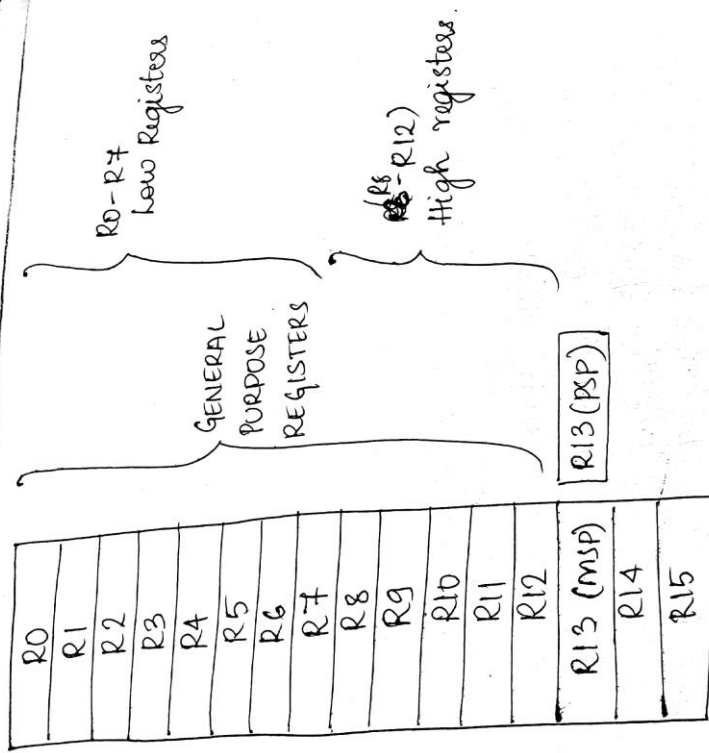 R0
R1
R2
R3
R4
R5
R6
R7
R8
R9
R10
R11
R12
R13 (MSP)
R14
R15
R13 (PSP)
GENERAL
PURPOSE
REGISTERS
R0-R7
Low Registers
(R8
-R12)
High registers.